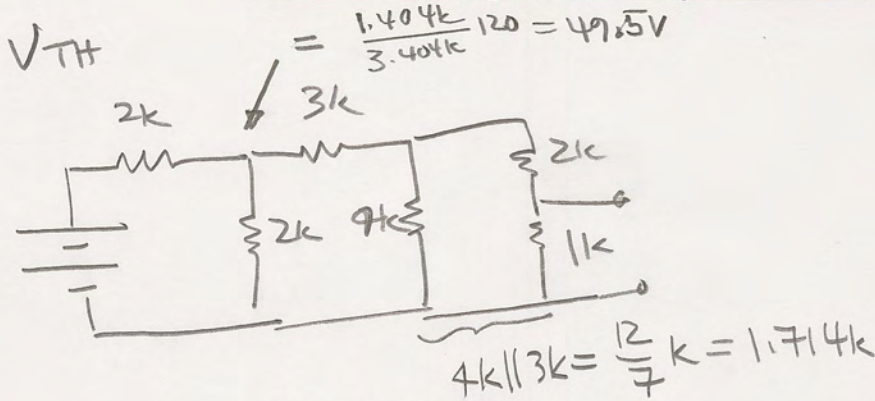 VTH = 1.404k/3.404k 120 = 49.5V
2k
3k
2k
2k
4k
1k
4k||3k = 12/7 k = 1.714k